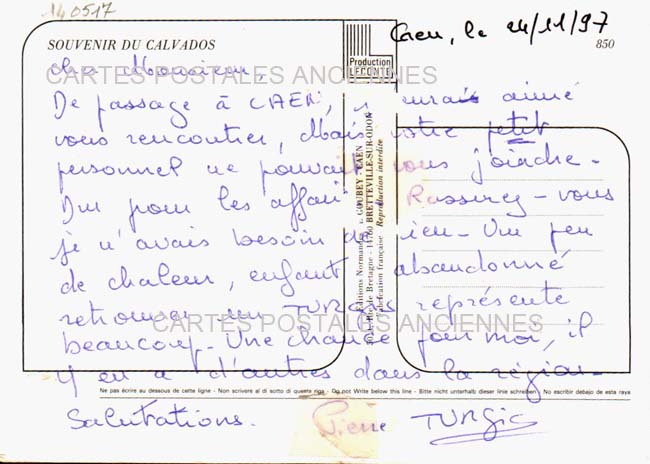 140517
Caen, le 24/11/97
SOUVENIR DU CALVADOS
Production
LECONTE
850
Cher Monsieur,
CARTES POSTALES ANCIENNES
De passage à CAEN, j'aurais aimé
vous rencontrer, Mais votre petit
personnel ne pouvait vous joindre -
Dur pour les affaires Rassurez-vous
je n'avais besoin de rien - Un peu
de chaleur, enfant abandonné
retrouver un TURGIS représente
CARTES POSTALES ANCIENNES
beaucoup - Une chance pour moi, il
y en a d'autres dans la région -
Editions Normandes GOUBEY CAEN
de Bretagne - 14760 BRETTEVILLE-SUR-ODON
Fabrication française Reproduction interdite
Ne pas écrire au dessous de cette ligne - Non scrivere al di sotto di questa riga - Do not Write below this line - Bitte nicht unterhalb dieser linie schreiben - No escribir debajo de esta raya
Salutations. Pierre TURGIS